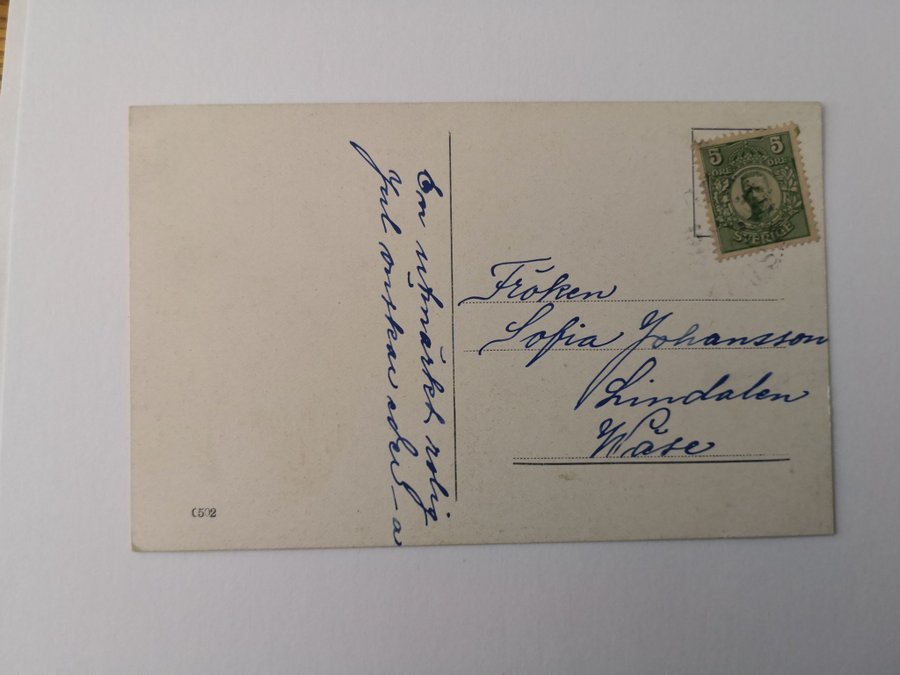 En utmärkt rolig
Jul önskas eder – a
5 5
ÖRE ÖRE
SVERIGE
Fröken
Sofia Johansson
Lindalen
Wäse
C502